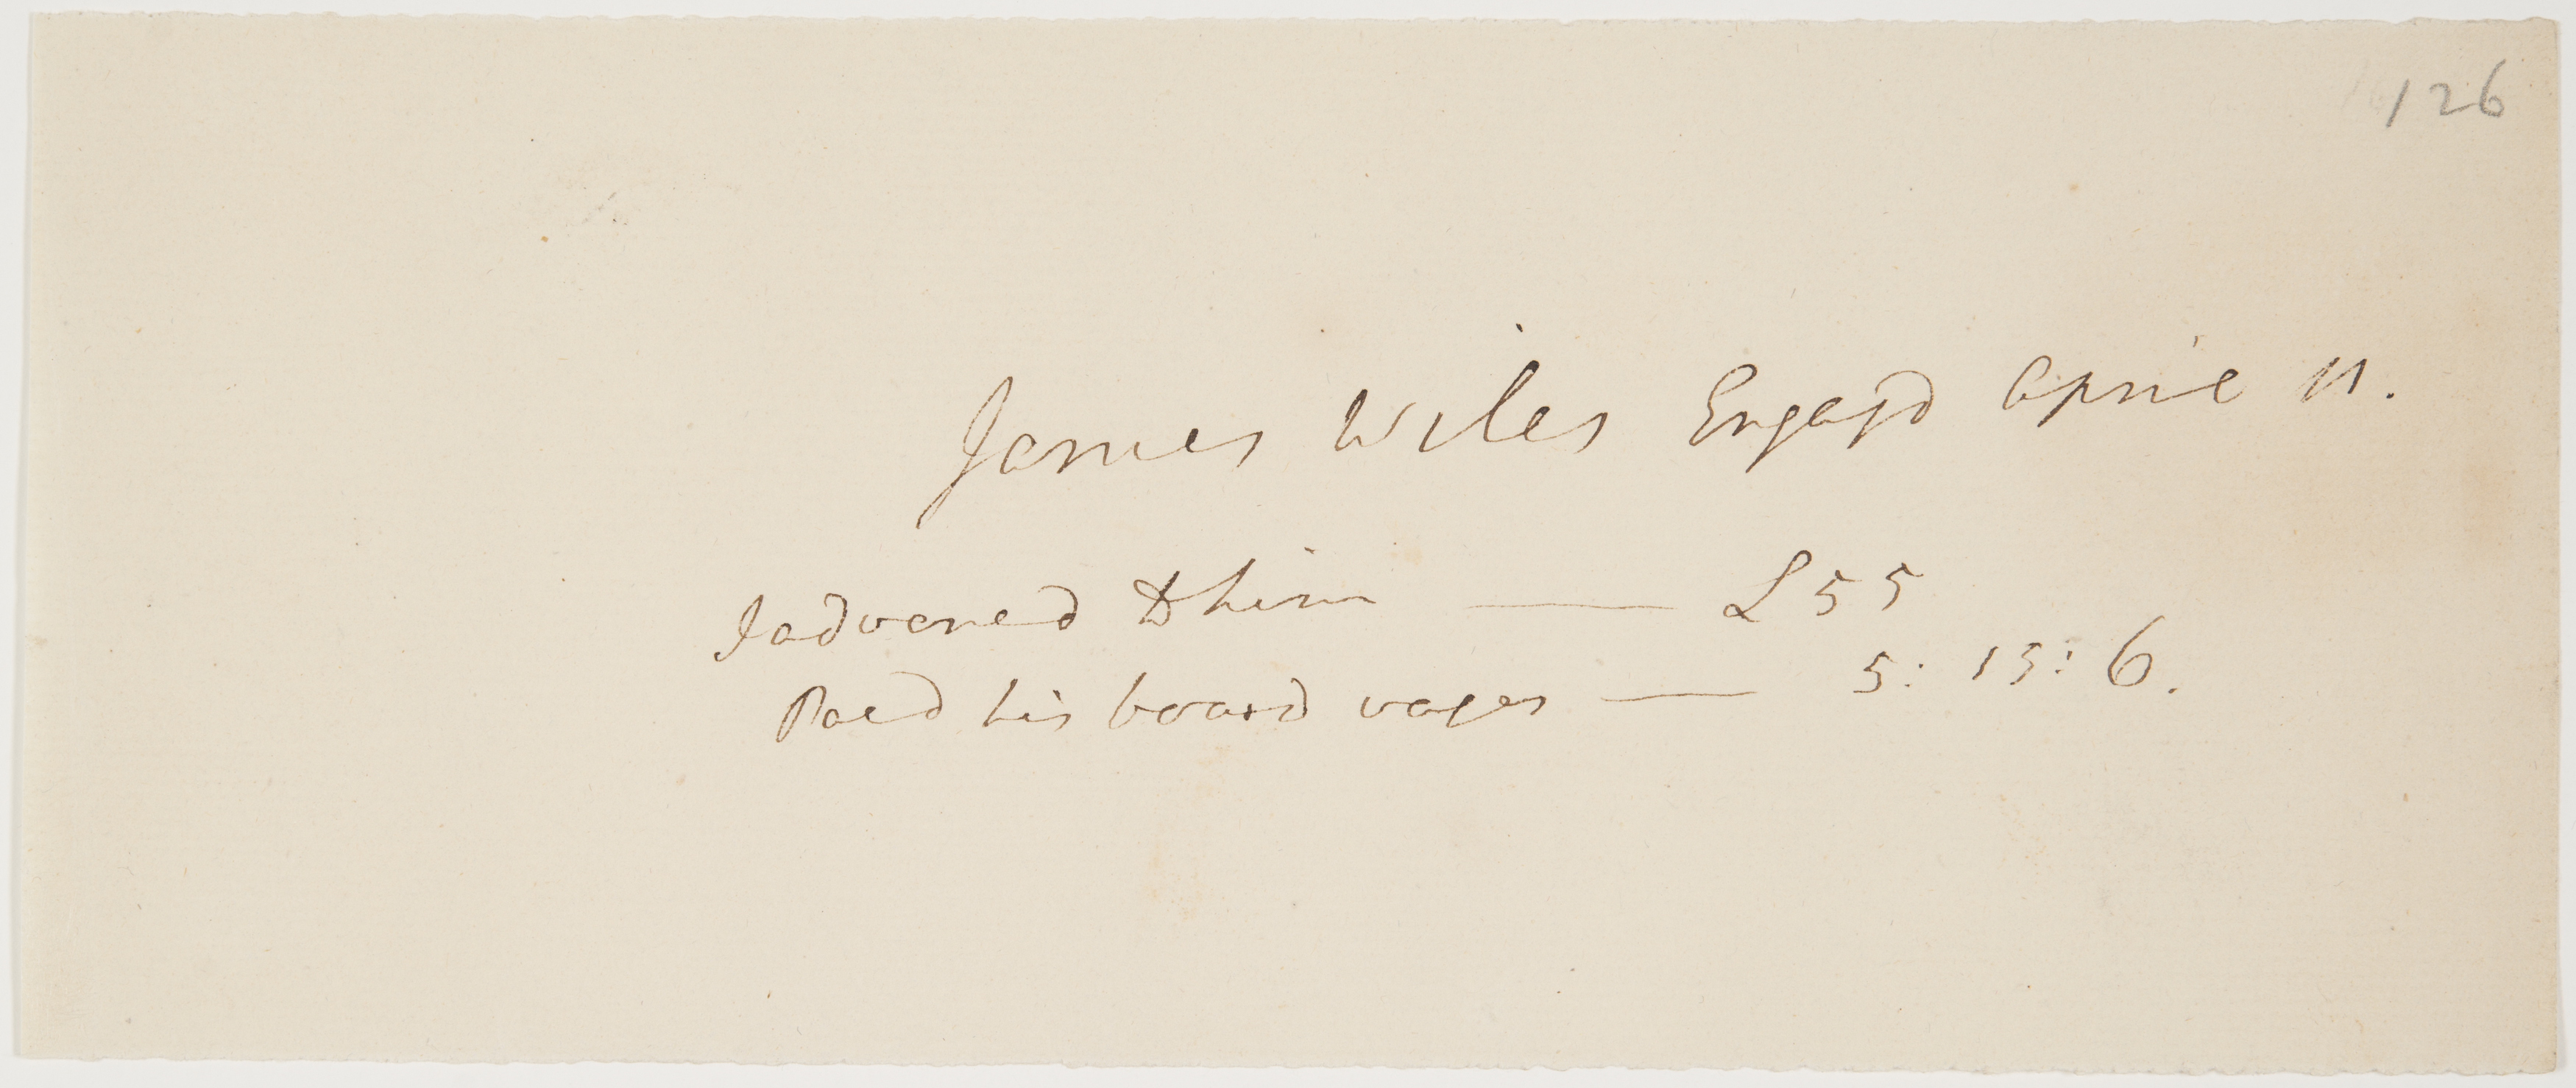 126
James Wiles Engagd April 11.
I advancd to him — £55
Paid his board wages — 5: 15: 6.